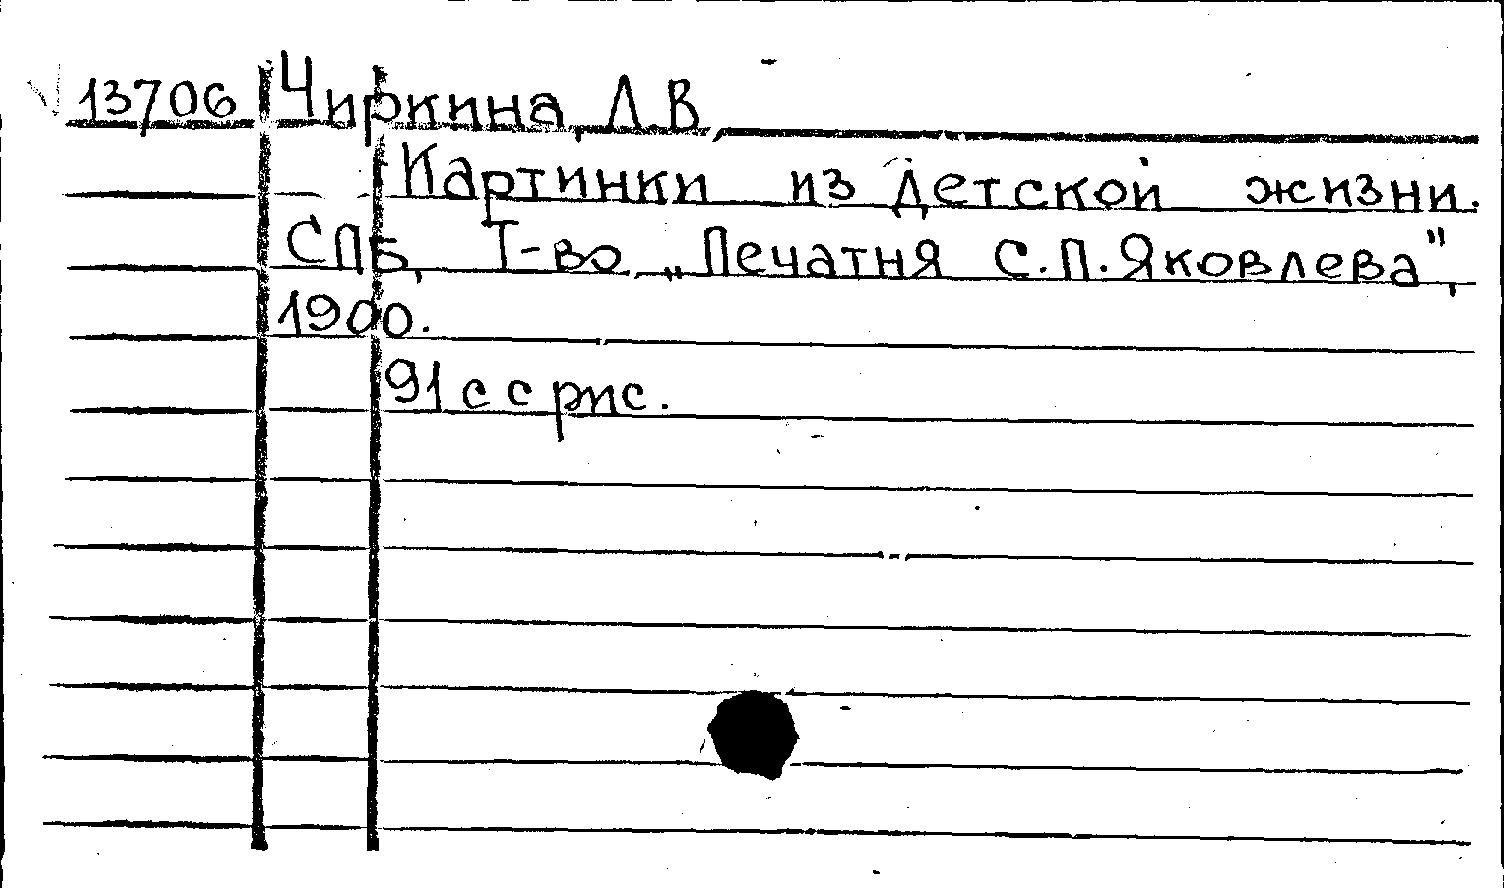 13706 Чиркина, Л.В.
Картинки из детской жизни.
СПб, Т-во „Печатня С.П.Яковлева",
1900.
91 с с рис.